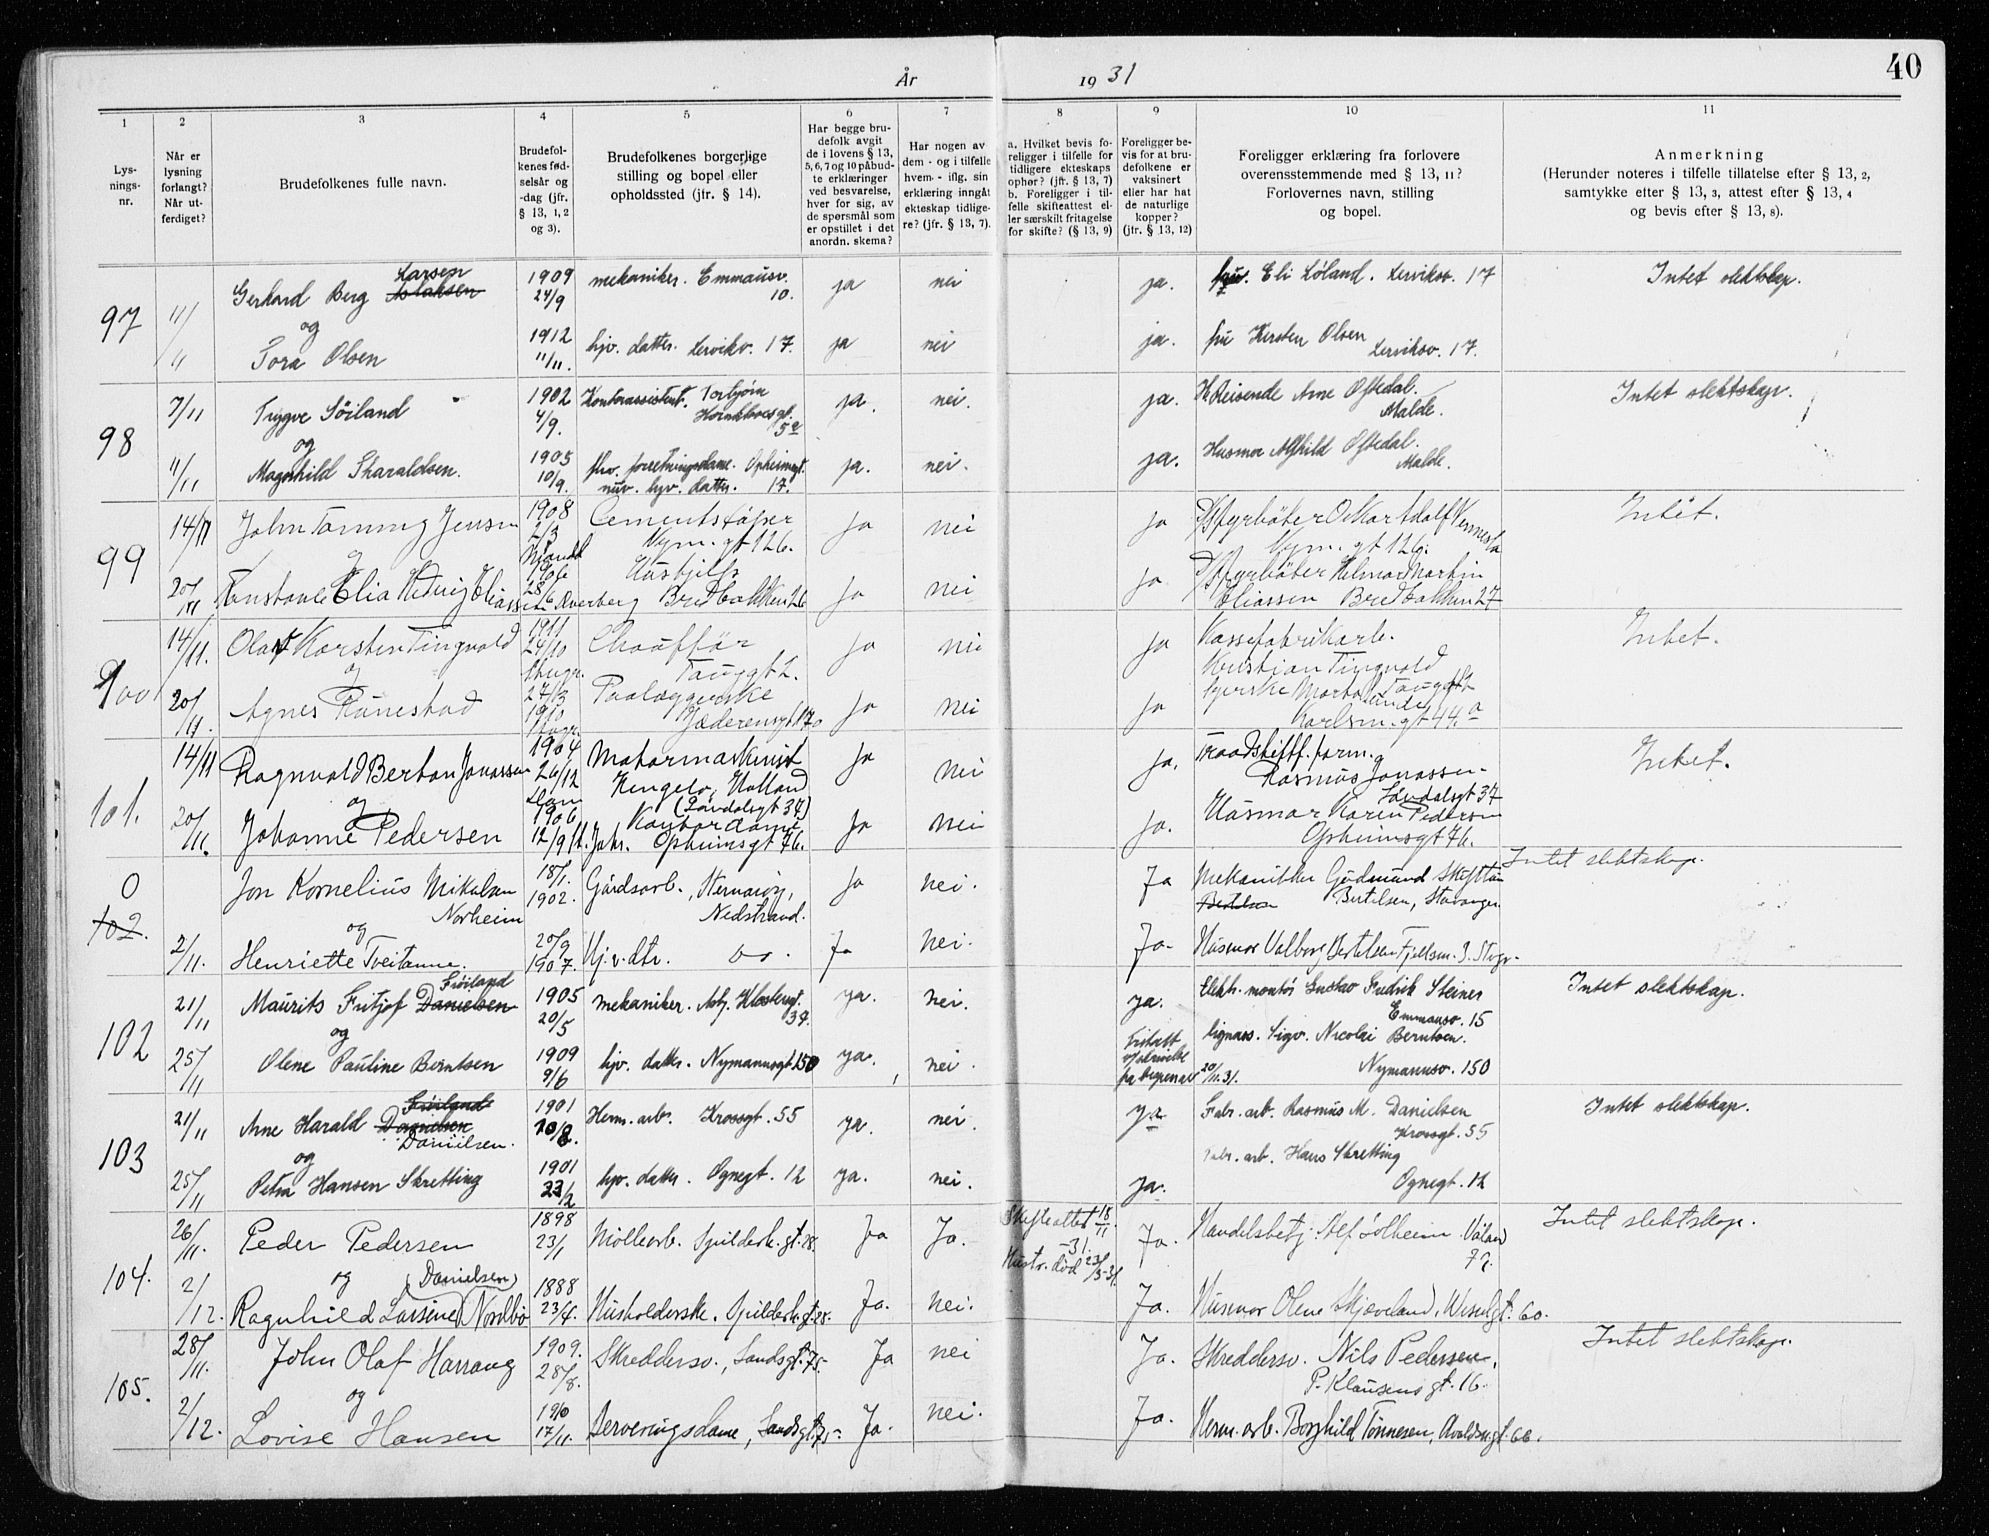 År 1931
40
1
2
3
4
5
6
7
8
9
10
11
Lys-
nings-
nr.
Når er
lysning
forlangt?
Når ut-
ferdiget?
Brudefolkenes fulle navn.
Brudefol-
kenes fød-
selsår og
-dag (jfr.
§ 13, 1, 2
og 3).
Brudefolkenes borgerlige
stilling og bopel eller
opholdssted (jfr. § 14).
Har begge bru-
defolk avgit
de i lovens § 13,
5, 6, 7 og 10 påbud-
te erklæringer
ved besvarelse,
hver for sig, av
de spørsmål som
er opstillet i det
anordn. skema?
Har nogen av
dem - og i tilfelle
hvem. - iflg. sin
erklæring inngått
ekteskap tidlige-
re? (jfr. § 13, 7).
a. Hvilket bevis fo-
religger i tilfelle for
tidligere ekteskaps
ophør? (jfr. § 13, 7)
b. Foreligger i til-
felle skifteattest el-
ler særskilt fritagelse
for skifte? (§ 13, 9)
Foreligger be-
vis for at bru-
defolkene er
vaksinert
eller har hat
de naturlige
kopper?
(jfr. § 13, 12)
Foreligger erklæring fra forlovere
overensstemmende med § 13, 11?
Forlovernes navn, stilling
og bopel.
Anmerkning
(Herunder noteres i tilfelle tillatelse efter § 13, 2,
samtykke efter § 13, 3, attest efter § 13, 4
og bevis efter § 13, 8).
97
Larsen
Gerhard Berg
1909
24/9
mekaniker. Emmausv.
10.
ja
nei
ja.
Eli Løland. Lerviksv. 17
Intet slektskap.
og
Tora Olsen
1912
11/11.
hjv. datter. Lervikv. 17.
ja
nei
ja.
fru Kirsten Olsen
Lerviksv. 17.
98
7/11
Trygve Söiland
1902
4/9.
Kontorassistent. Torbjørn
Hornklovesgt.
5a
ja.
nei.
ja.
H. Reisende Arne Oftedal.
Malde.
Intet slektskap.
og
11/11
Magnhild Skaraldsen.
1905
10/9.
fhv. forretningsdame. Opheimsgt.
nuv. hjv. datter. 17.
ja.
nei.
ja.
Husmor Alfhild Oftedal.
Malde.
99
14/11
John Tanning Jensen
1908
2/3
Cementstøper
Nym. gt 126.
ja
nei
ja
Oskar Adolf Vennesla
Nym. gt 126.
Intet.
20/11
Konstance Elia Hedvig Eliassen
1906
28/6
Hushjelp
Bredbakken 26
ja
nei
ja
Helmar Martin
Eliassen Bredbakken 27
100
14/11.
Olaf Karsten Tingvold
1911
24/10
Chauffør
Taugt 2.
ja
nei
ja
Kassefabrikarb.
Kristian Tingvold
Taugt 2
Intet.
og
20/11.
Agnes Rünestad
27/3
1910
Paalæggerske
Jæderensgt 17a
ja
nei
ja
Karlsm. gt 44a
101.
14/11
Ragnvald Berton Jonassen
1904
26/12
Motormaskinist
Hengelo, Holland
(Lövdalsgt 37)
ja
nei
ja.
Rasmus Jonassen
Lövdalsgt 37
Intet.
og
20/11.
Johanne Pedersen
1906
12/9 St. Joh.
Kontordame
Opheimsgt 76.
ja
nei
ja.
Husmor Karen Pedersen
Opheimsgt 76.
0
102.
Jon Kornelius Mikalsen
Norheim
18/1.
1902.
Gårdsarb., Hernarøy,
Nedstrand.
ja
nei.
Ja
Mekaniker Gudmund Skjeften
Bertelsen Bertelsen, Stavanger.
Intet slektskap.
og
2/11.
Henriette Tveitanne.
20/9
1907.
Hj.v. dtr.
Ja
nei.
Ja.
Husmor Valborg Bertelsen Fjellsm. 3. Stvgr.
102
21/11
Frøiland
Maurits Fritjof Danielsen
1905
20/5
mekaniker. Asbj. Klostersgt.
34.
ja.
nei.
ja.
Elektr. montør Gustav Fredrik Steiner
Emmausv. 15
Intet slektskap.
og
25/11
Olene Pauline Berntsen
1909
9/6
hjv. datter. Nymannsgt 150
ja.
nei.
20/11.31.
Sigv. Nicolai Berntsen.
Nymannsv. 150
103
21/11
Frøiland
Arne Harald Danielsen
Daniilsen.
1901
10/8.
Herm. arb. Krossgt. 55
ja.
nei.
ja
Fabr. arb. Rasmus M. Danielsen
Krossgt. 55
Intet slektskap.
og
25/11
Petra Hansen Skretting
1901
23/2
hjv. datter. Øgnegt. 12
ja.
nei.
ja.
Fabr. arb. Hans Skretting
Øgnegt. 12
104.
26/11.
Peder Pedersen
1898
23/1
Mølleearb. Spilderh. gt. 28.
Ja
Ja.
Skifteattest 18/11
-31.
Hustr. død 23/5-31.
Ja.
Handelsbetj. Alf Solheim. Våland
72.
Intet slektskap.
og
(Danielsen)
2/12.
Ragnhild Larsine Nordbø
1888
23/4.
Husholderske. Spilderh. gt. 28.
Ja.
nei.
Ja.
Husmor Olene Skjæveland, Weselgt. 60.
105.
28/11.
John Olaf Harrang
1909.
28/8.
Skreddersv., Sandsgt. 75.
Ja
nei
Ja.
Skreddersv. Nils Pedersen,
P. Klausens gt. 16.
Intet slektskap.
og
2/12.
Lovise Hansen
1910
17/11.
Serveringsdame, Sandsgt. 75.
Ja.
nei.
Ja.
Herm. arb. Borghild Tønnesen, Avaldsn. gt. 66.